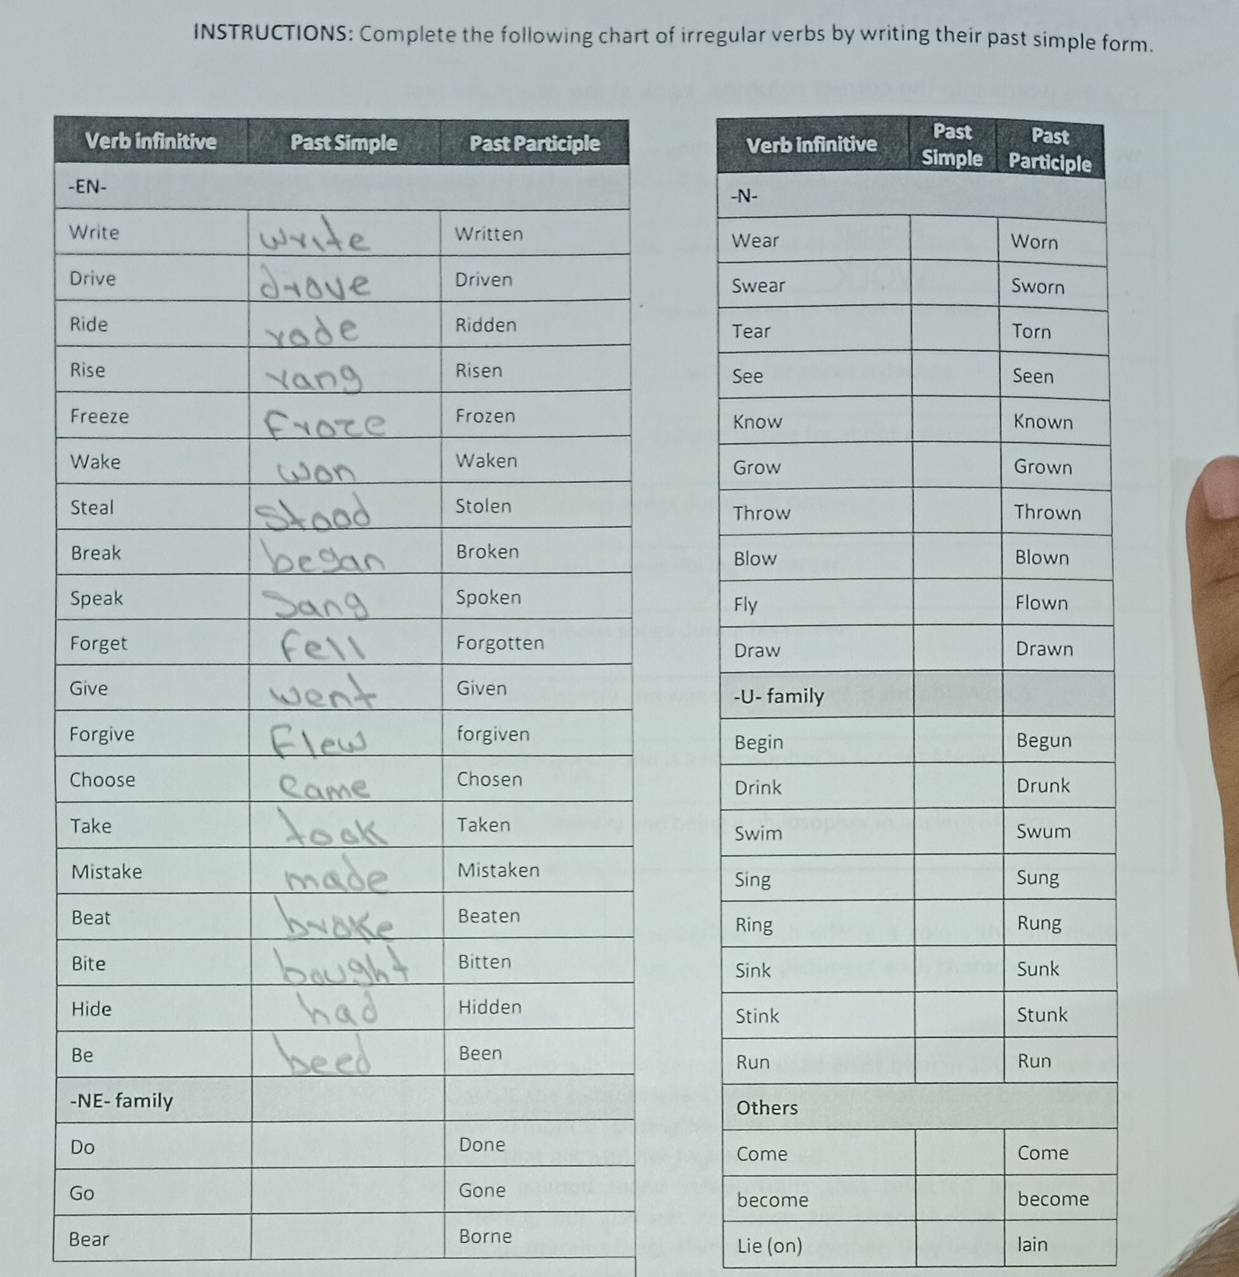 INSTRUCTIONS: Complete the following chart of irregular verbs by writing their past simple form.
Verb infinitive Past Simple Past Participle
-EN-
Write write Written
Drive drove Driven
Ride rode Ridden
Rise rang Risen
Freeze Froze Frozen
Wake won Waken
Steal stood Stolen
Break began Broken
Speak Sang Spoken
Forget fell Forgotten
Give went Given
Forgive Flew forgiven
Choose came Chosen
Take took Taken
Mistake made Mistaken
Beat broke Beaten
Bite bought Bitten
Hide had Hidden
Be beed Been
-NE- family
Do Done
Go Gone
Bear Borne
Verb infinitive Past Simple Past Participle
-N-
Wear Worn
Swear Sworn
Tear Torn
See Seen
Know Known
Grow Grown
Throw Thrown
Blow Blown
Fly Flown
Draw Drawn
-U- family
Begin Begun
Drink Drunk
Swim Swum
Sing Sung
Ring Rung
Sink Sunk
Stink Stunk
Run Run
Others
Come Come
become become
Lie (on) lain